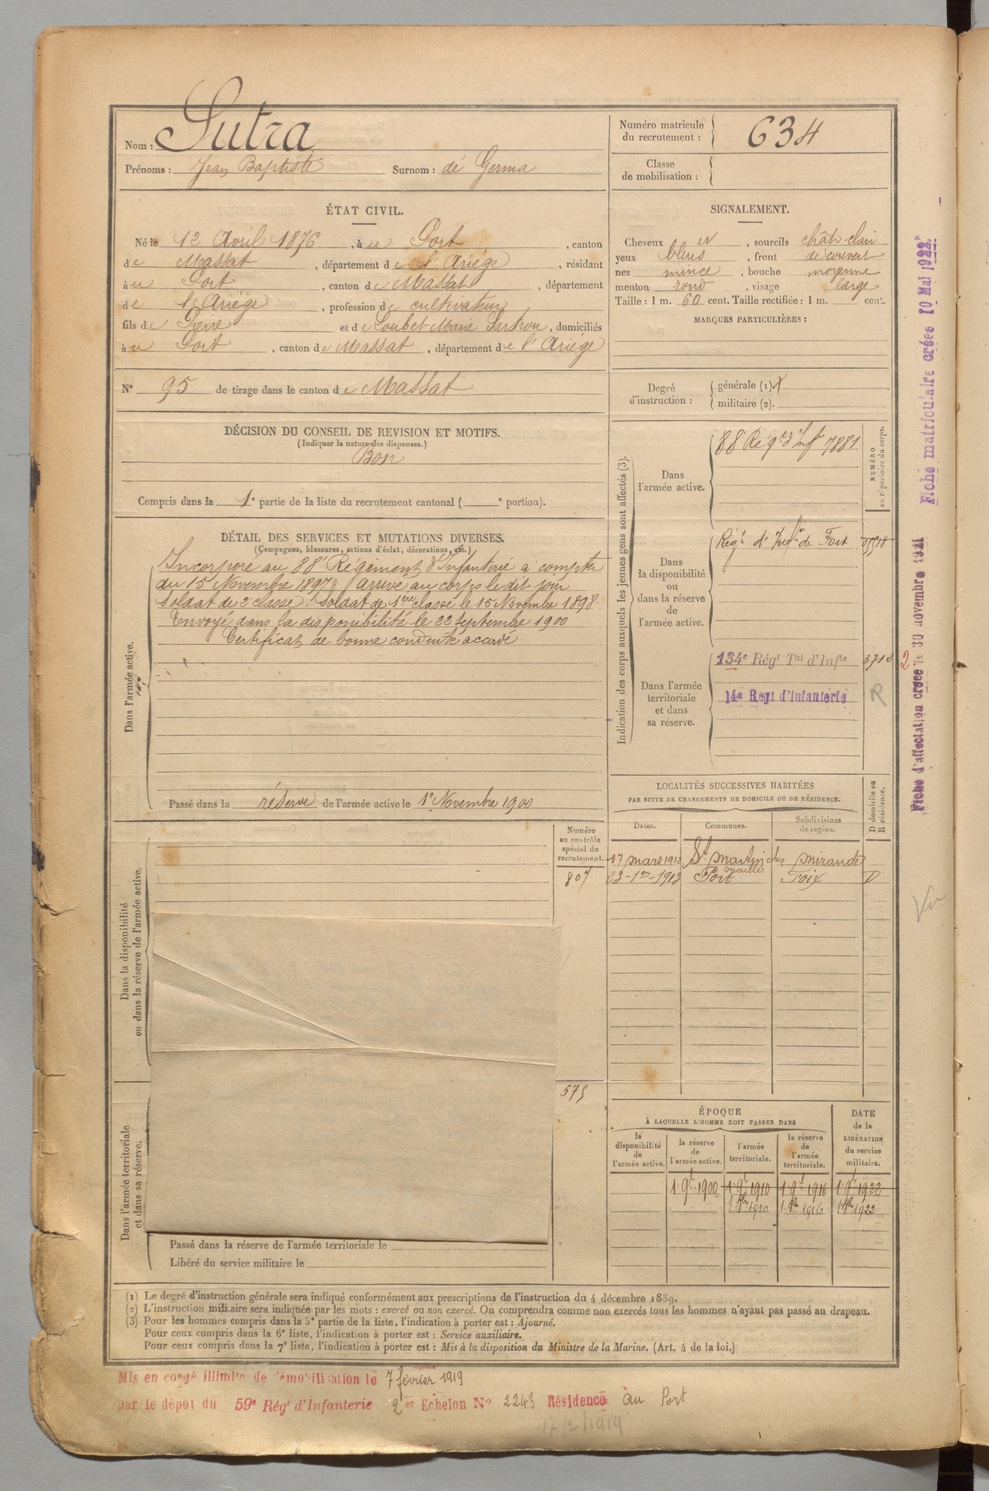 Nom : Sutra
Prénoms : Jean Baptiste Surnom : dé Germa
Numéro matricule du recrutement : 634
Classe de mobilisation :
ÉTAT CIVIL.
Né le 12 Avril 1876, à Port, canton
de Massat, département de l'Ariège, résidant
à Port, canton de Massat, département
de l'Ariège, profession de cultivateur
fils de Pierre et de Loubet Marie, domiciliés
à Port, canton de Massat, département de l'Ariège
N° 95 de tirage dans le canton de Massat
SIGNALEMENT.
Cheveux et, sourcils chât-clair
yeux bleus, front découvert
nez mince, bouche moyenne
menton rond, visage large
Taille : 1 m. 60 cent. Taille rectifiée : 1 m. cent.
MARQUES PARTICULIÈRES :
Degré d'instruction : générale (1)
militaire (2).
DÉCISION DU CONSEIL DE REVISION ET MOTIFS.
(Indiquer la nature des dispenses.)
Bon
Compris dans la 1e partie de la liste du recrutement cantonal ( e portion).
DÉTAIL DES SERVICES ET MUTATIONS DIVERSES.
(Campagnes, blessures, actions d'éclat, décorations, etc.)
Dans l'armée active.
Incorporé au 88e Régiment d'Infanterie à compter
du 15 Novembre 1897, arrivé au corps le dit jour
soldat de 2e classe. Soldat de 1ère classe le 15 Novembre 1898
Envoyé dans la disponibilité le 22 Septembre 1900
Certificat de bonne conduite accordé
Passé dans la réserve de l'armée active le 1er Novembre 1900
Indication des corps auxquels les jeunes gens sont affectés (3).
NUMÉRO au répertoire du corps.
Dans l'armée active.
88 Régt d'Inft 7881
Dans la disponibilité ou dans la réserve de l'armée active.
Régt d'Infie de Foix
Dans l'armée territoriale et dans sa réserve.
134e Régt Tal d'Infie
14e Régt d'Infanterie
R
LOCALITÉS SUCCESSIVES HABITÉES
PAR SUITE DE CHANGEMENTS DE DOMICILE OU DE RÉSIDENCE.
D domicile ou R résidence.
Dates. Communes. Subdivisions de région.
17 mars 1912 St Martin Mirande
23-1er-1913 Port Foix D
Dans la disponibilité ou dans la réserve de l'armée active.
Numéro au contrôle spécial du recrutement.
807
575
Dans l'armée territoriale et dans sa réserve.
Passé dans la réserve de l'armée territoriale le
Libéré du service militaire le
ÉPOQUE
À LAQUELLE L'HOMME DOIT PASSER DANS
DATE de la LIBÉRATION du service militaire.
la disponibilité de l'armée active. la réserve de l'armée active. l'armée territoriale. la réserve de l'armée territoriale.
1 9e 1900 1 9e 1910 1 9e 1916 1 9e 1922
1910 1916 1922
(1) Le degré d'instruction générale sera indiqué conformément aux prescriptions de l'instruction du 4 décembre 1889.
(2) L'instruction militaire sera indiquée par les mots : exercé ou non exercé. On comprendra comme non exercés tous les hommes n'ayant pas passé au drapeau.
(3) Pour les hommes compris dans la 5e partie de la liste, l'indication à porter est : Ajourné.
Pour ceux compris dans la 6e liste, l'indication à porter est : Service auxiliaire.
Pour ceux compris dans la 7e liste, l'indication à porter est : Mis à la disposition du Ministre de la Marine. (Art. 4 de la loi.)
Mis en congé illimité de démobilisation le 7 février 1919
par le dépôt du 59e Régt d'Infanterie 2e Echelon N° 2243 Résidence au Port
17/2/1919
Fiche d'affectation créée le 30 novembre 1921
Fiche matriculaire créée 10 Mai 1922
2
Vu